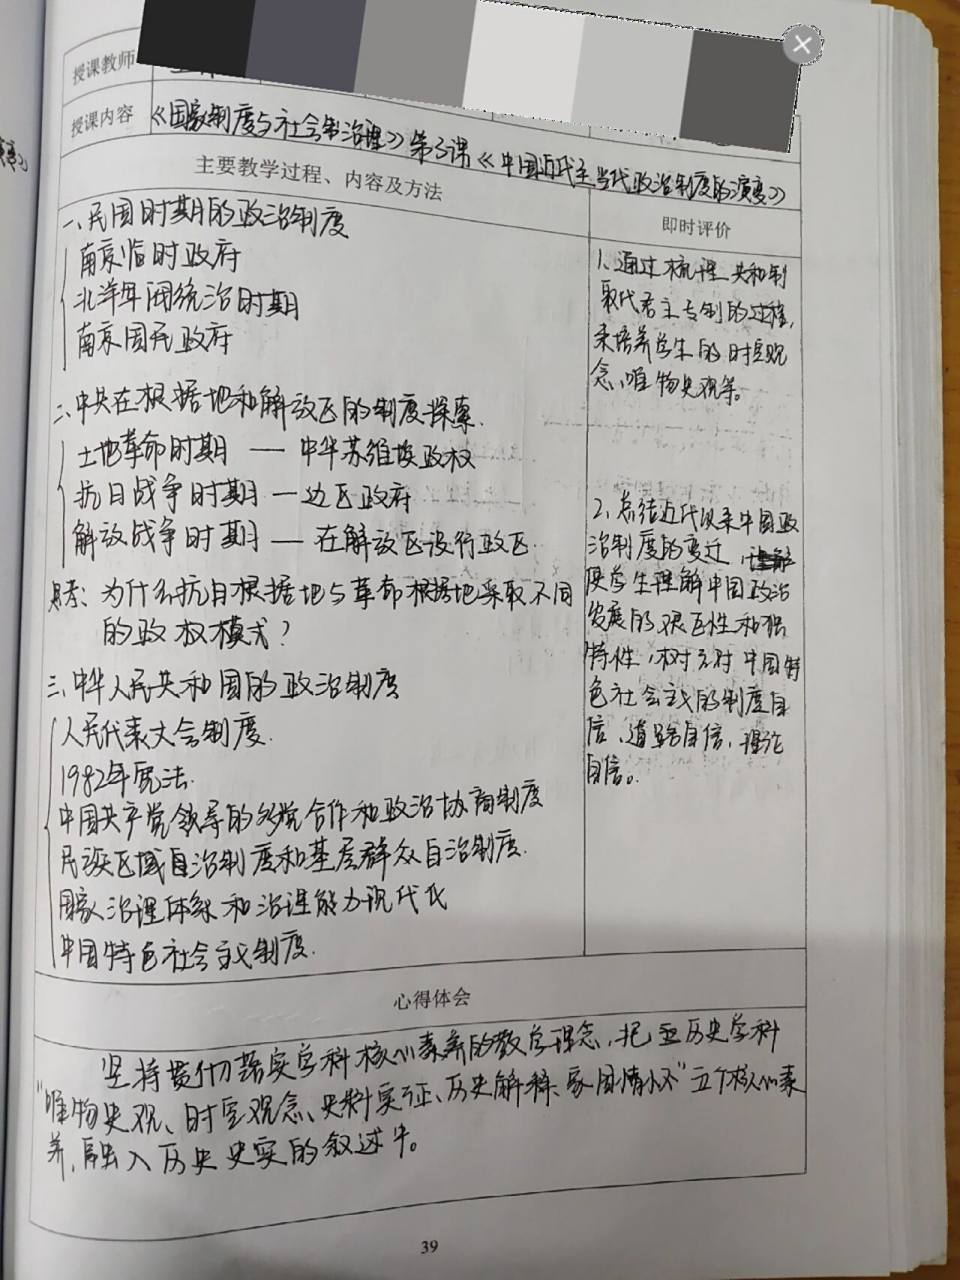 授课教师
授课内容
《国家制度与社会治理》第3课《中国近代至当代政治制度的演变》
主要教学过程、内容及方法
即时评价
一、民国时期的政治制度
南京临时政府
北洋军阀统治时期
南京国民政府
二、中共在根据地和解放区的制度探索.
土地革命时期 — 中华苏维埃政权
抗日战争时期 — 边区政府
解放战争时期 — 在解放区设行政区.
思考:为什么抗日根据地与革命根据地采取不同
的政权模式?
三、中华人民共和国的政治制度
人民代表大会制度.
1982年宪法.
中国共产党领导的多党合作和政治协商制度
民族区域自治制度和基层群众自治制度.
国家治理体系和治理能力现代化
中国特色社会主义制度.
1、通过梳理共和制
取代君主专制的过程,
来培养学生的时空观
念、唯物史观等。
2、总结近代以来中国政
治制度的变迁,
使学生理解中国政治
发展的艰巨性和独
特性,树立对中国特
色社会主义的制度自
信、道路自信、理论
自信。
心得体会
坚持贯彻落实学科核心素养的教学理念,把历史学科
"唯物史观、时空观念、史料实证、历史解释、家国情怀"五个核心素
养,融入历史史实的叙述中。
39